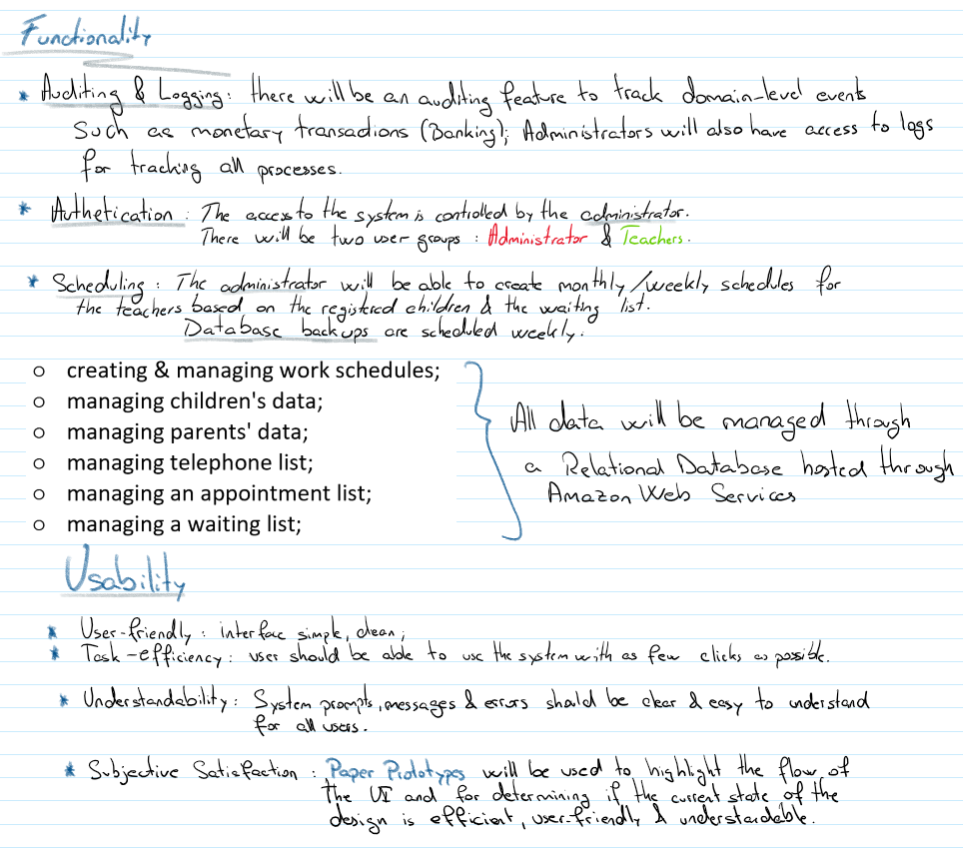 Functionality
* Auditing & Logging: there will be an auditing feature to track domain-level events
Such as monetary transactions (Banking); Administrators will also have access to logs
for tracking all processes.
* Authetication: The access to the system is controlled by the administrator.
There will be two user groups: Administrator & Teachers.
* Scheduling: The administrator will be able to create monthly/weekly schedules for
the teachers based on the registered children & the waiting list.
Database backups are scheduled weekly.
o creating & managing work schedules;
o managing children's data;
o managing parents' data;
o managing telephone list;
o managing an appointment list;
o managing a waiting list;
All data will be managed through
a Relational Database hosted through
Amazon Web Services
Usability
* User-friendly: interface simple, clean;
* Task-efficiency: user should be able to use the system with as few clicks as possible.
* Understandability: System prompts, messages & errors should be clear & easy to understand
for all users.
* Subjective Satisfaction: Paper Prototypes will be used to highlight the flow of
the UI and for determining if the current state of the
design is efficient, user-friendly & understandable.